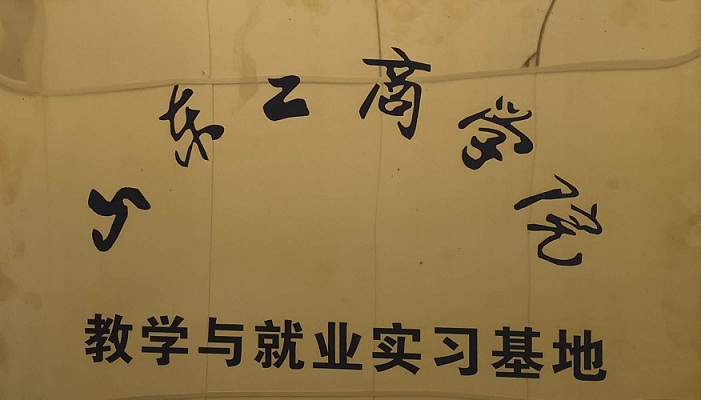 山东工商学院
教学与就业实习基地